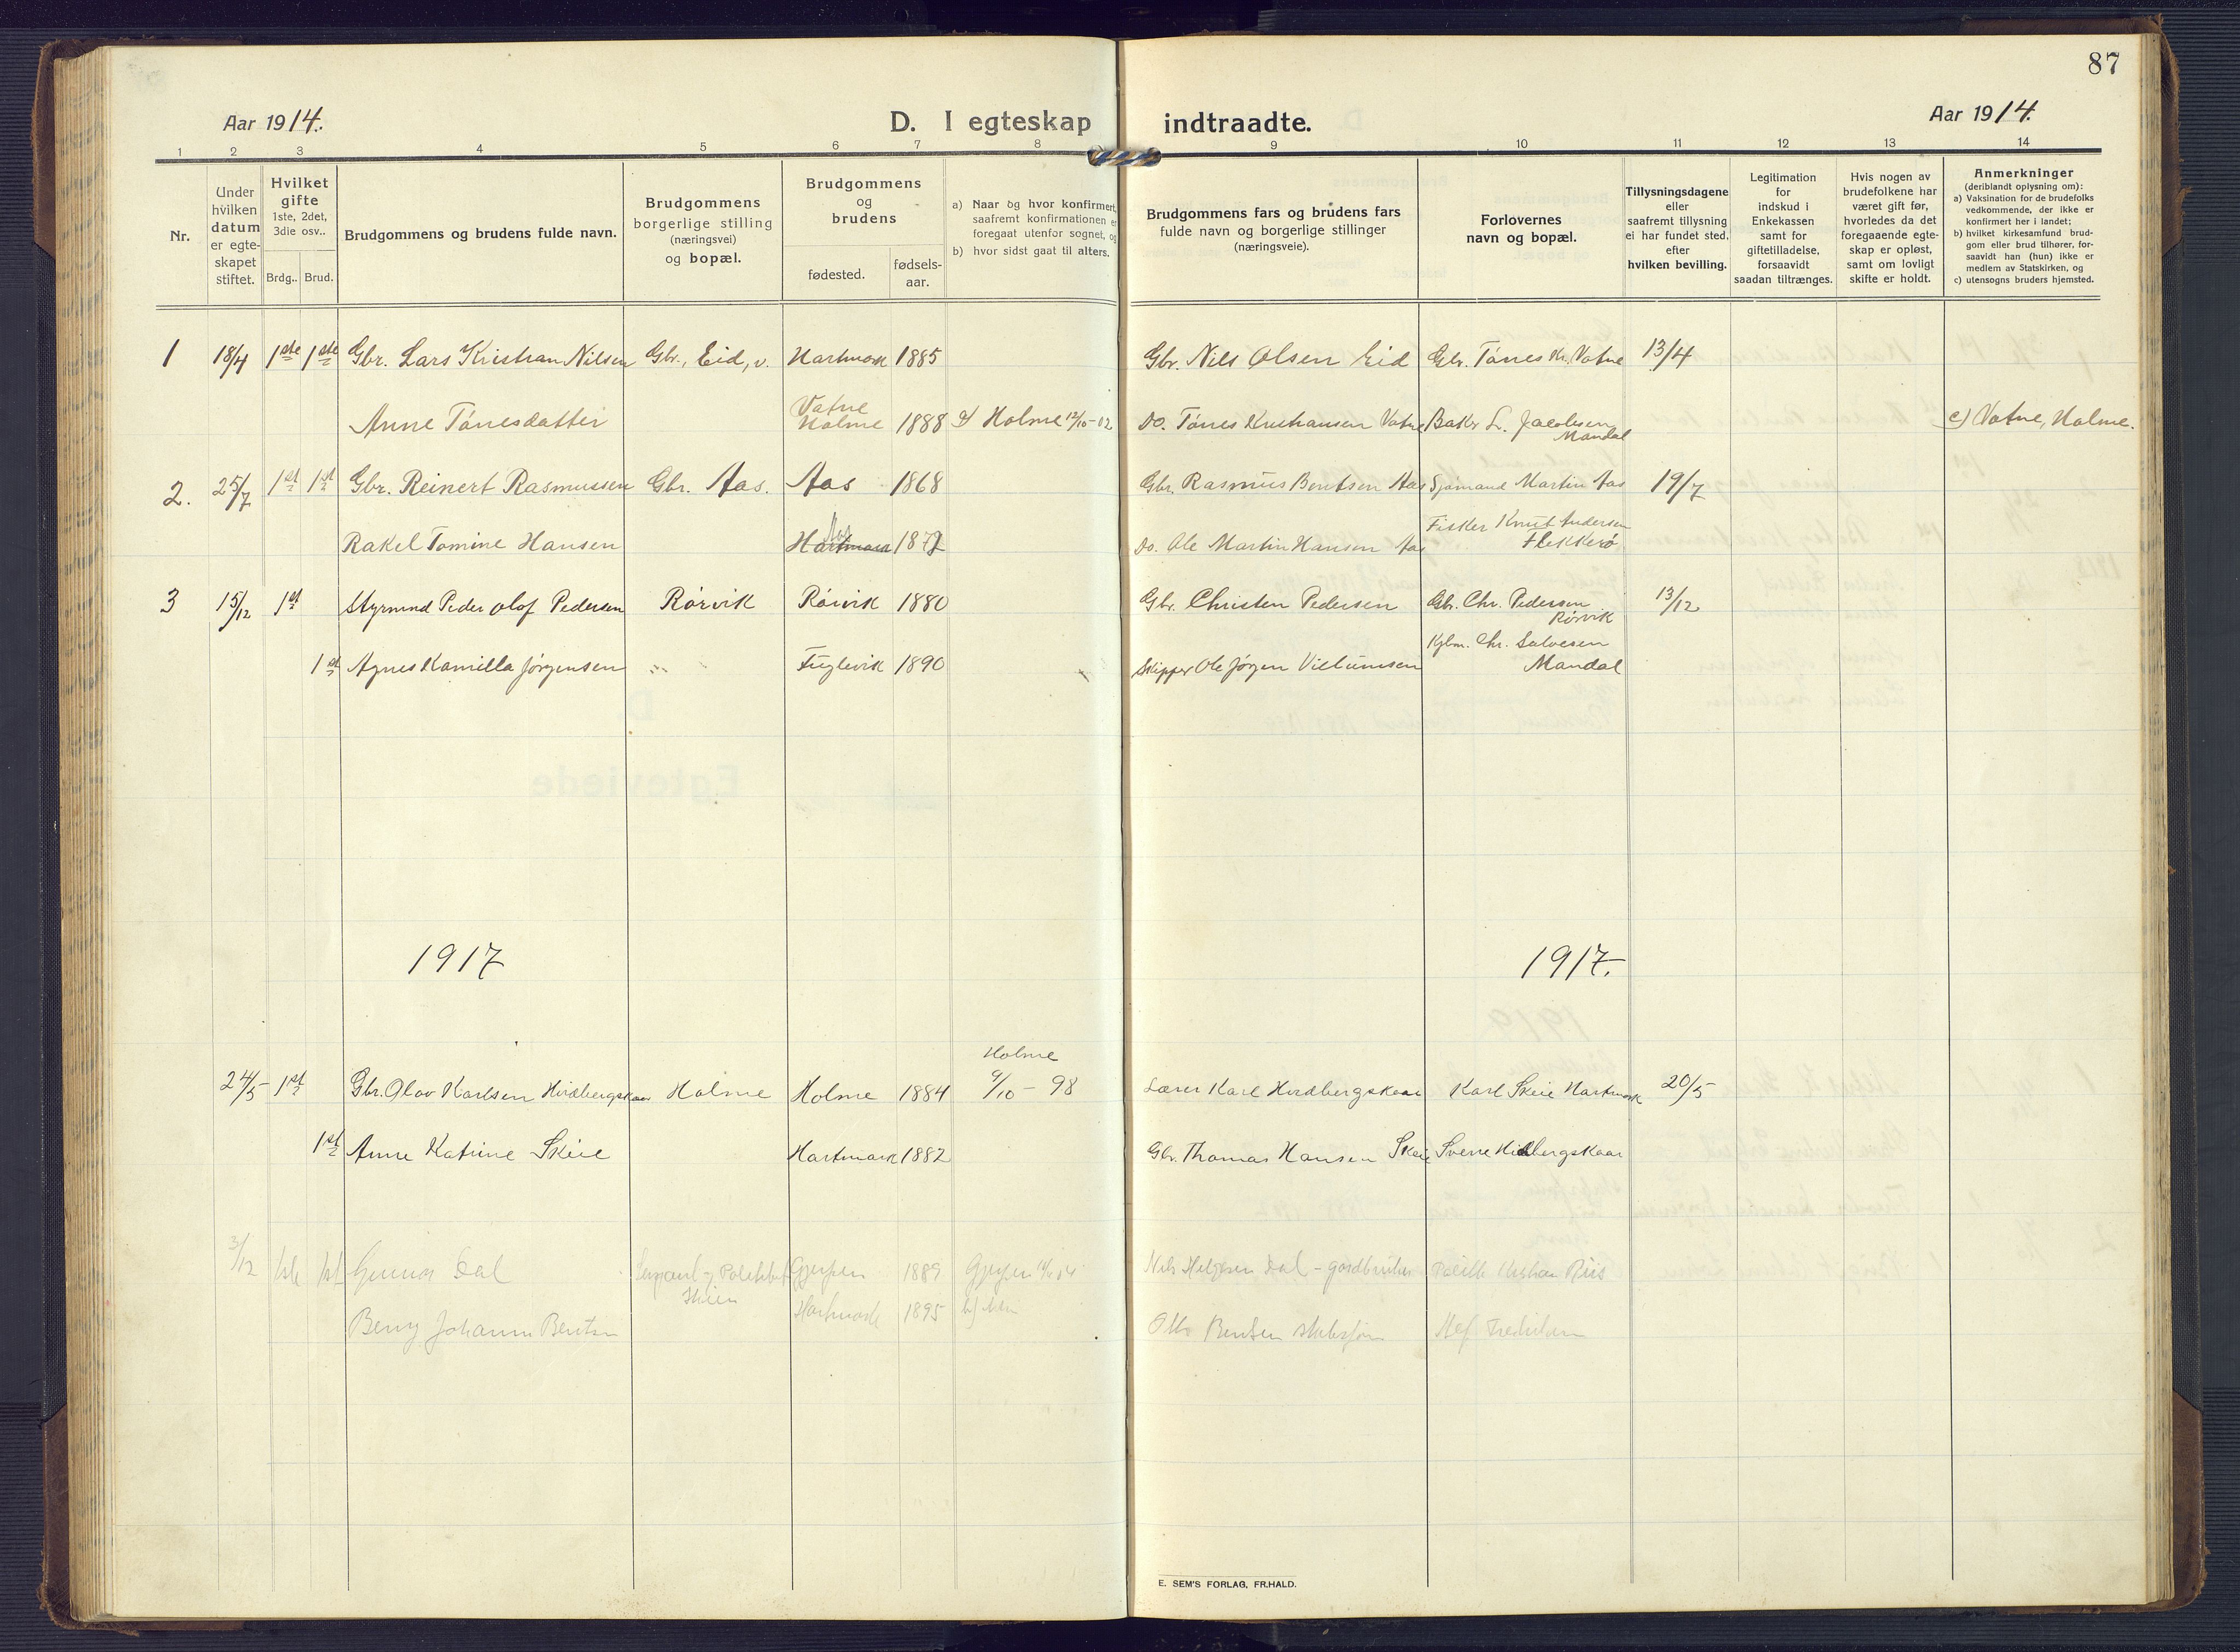 87
Aar 1914.
D. I egteskap indtraadte.
Aar 1914.
1 2 3 4 5 6 7 8 9 10 11 12 13 14
Nr.
Under hvilken datum er egte-skapet stiftet.
Hvilket gifte 1ste, 2det, 3die osv..
Brdg.. Brud.
Brudgommens og brudens fulde navn.
Brudgommens borgerlige stilling (næringsvei) og bopæl.
Brudgommens og brudens
fødested. fødsels-aar.
a) Naar og hvor konfirmert, saafremt konfirmationen er foregaat utenfor sognet, og
b) hvor sidst gaat til alters.
Brudgommens fars og brudens fars fulde navn og borgerlige stillinger (næringsveie).
Forlovernes navn og bopæl.
Tillysningsdagene eller saafremt tillysning ei har fundet sted, efter hvilken bevilling.
Legitimation for indskud i Enkekassen samt for giftetilladelse, forsaavidt saadan tiltrænges.
Hvis nogen av brudefolkene har været gift før, hvorledes da det foregaaende egte-skap er opløst, samt om lovligt skifte er holdt.
Anmerkninger (deriblandt oplysning om):
a) Vaksination for de brudefolks vedkommende, der ikke er konfirmert her i landet;
b) hvilket kirkesamfund brud-gom eller brud tilhører, for-saavidt han (hun) ikke er medlem av Statskirken, og
c) utensogns bruders hjemsted.
1 18/4 1ste 1ste Gbr. Lars Kristian Nilsen Gbr., Eid, v. Hartmark 1885 Gbr. Nils Olsen Eid Gbr. Tønes Kr. Vatne 13/4
Anne Tønesdatter Vatne Holme 1888 a) Holme 12/10-02 Do. Tønes Kristiansen Vatne Baker L. Jacobsen Mandal c) Vatne, Holme.
2. 25/7 1st 1st Gbr. Reinert Rasmussen Gbr. Aas. Aas 1868 Gbr. Rasmus Berntsen Aas Sjømand Martin Aas 19/7
Rakel Tomine Hansen Hartmark Aas 1872 Do. Ole Martin Hansen Aas Fisker Knut Andersen Flekkerø
3 15/12 1st Styrmnd Peder Olof Pedersen Rørvik Rørvik 1880 Gbr. Christen Pedersen Gbr. Chr. Pedersen Rørvik 13/12
1st Agnes Kamilla Jørgensen Fuglevik 1890 Skipper Ole Jørgen Villumsen Kjbm. Chr. Salvesen Mandal
1917 1917.
24/5 1st Gbr. Olav Karlsen Hirdbergskaar Holme Holme 1884 Holme 9/10-98 Lærer Karl Hirdbergskaar Karl Skeie Hartmark 20/5
1st Anne Katrine Skeie Hartmark 1882 Gbr. Thomas Hansen Skeie Sverre Hirdbergskaar
3/12 1ste 1st Gunnar Dal Skien Gjerpen 1889 Gjerpen Nils Helgesen Dal - gaardbruker
Johanne Bentsen Hartmark 1895 Otto Bentsen
E. SEM'S FORLAG, FR.HALD.